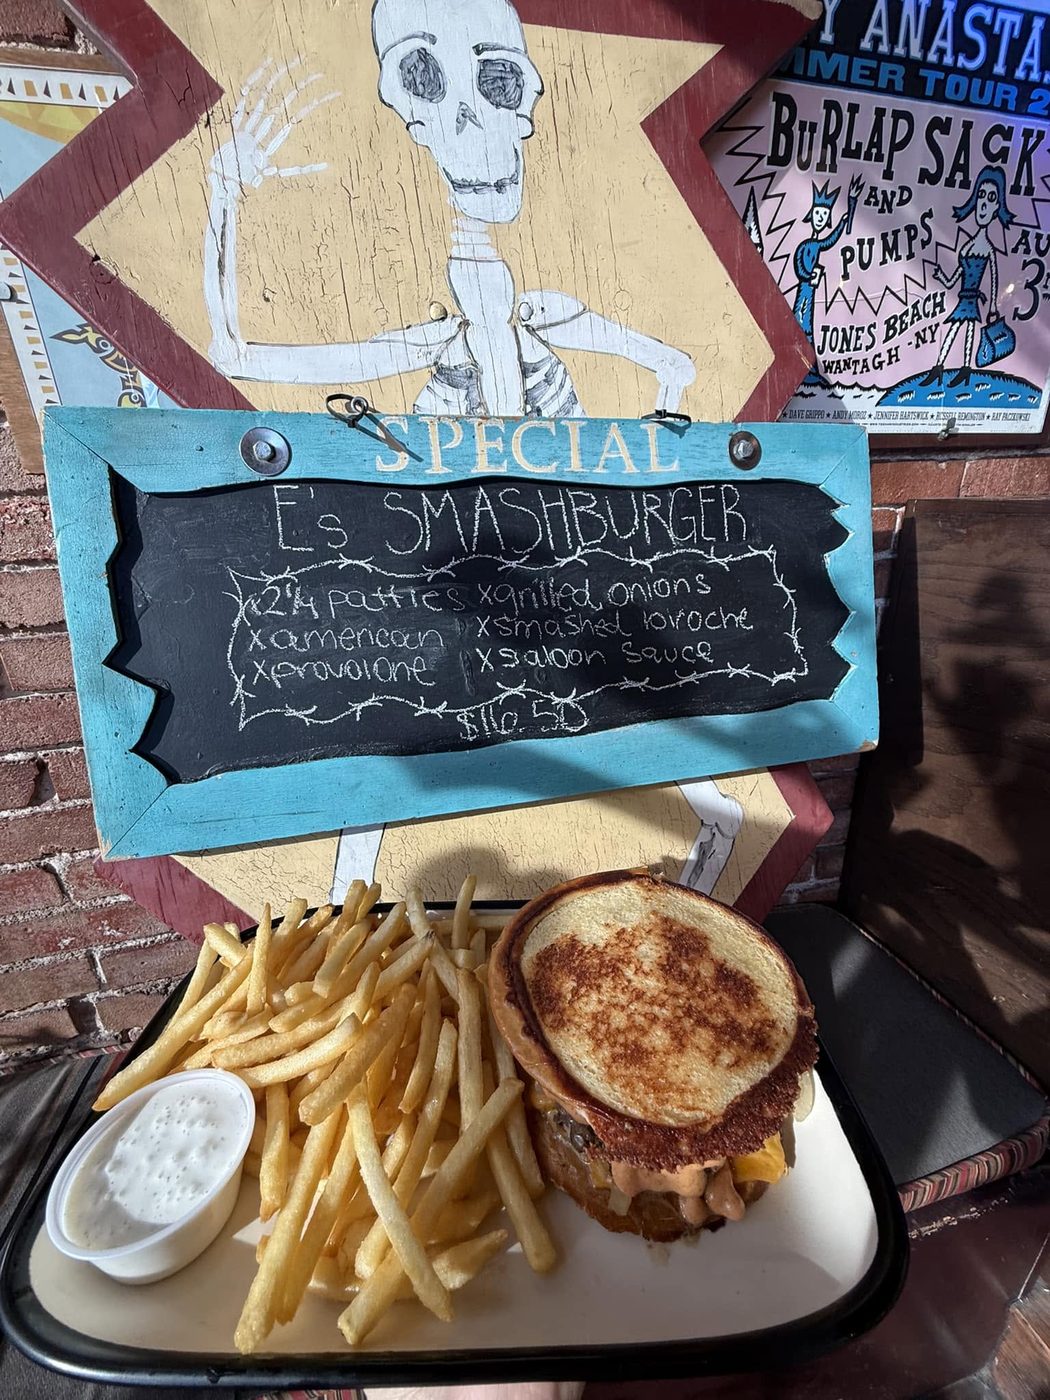 Y ANASTA
MMER TOUR 2
BURLAP SACK
AND
PUMPS
AU
3
JONES BEACH
WANTAGH - NY
DAVE GRIPPO ★ ANDY MOROZ ★ JENNIFER HARTSWICK ★ RUSSELL REMINGTON ★ RAY PACZKOWSKI
SPECIAL
E's SMASHBURGER
x2 1/4 patties xgrilled onions
xamerican xsmashed brioche
xprovolone xsaloon sauce
$16.50